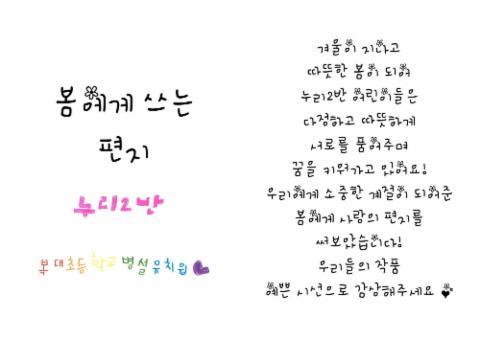 봄에게 쓰는
편지
누리2반
복대초등학교병설유치원
겨울이 지나고
따뜻한 봄이 되어
누리2반 어린이들은
다정하고 따뜻하게
서로를 품어주며
꿈을 키워가고 있어요!
우리에게 소중한 계절이 되어준
봄에게 사랑의 편지를
써보았습니다!
우리들의 작품
예쁜 시선으로 감상해주세요